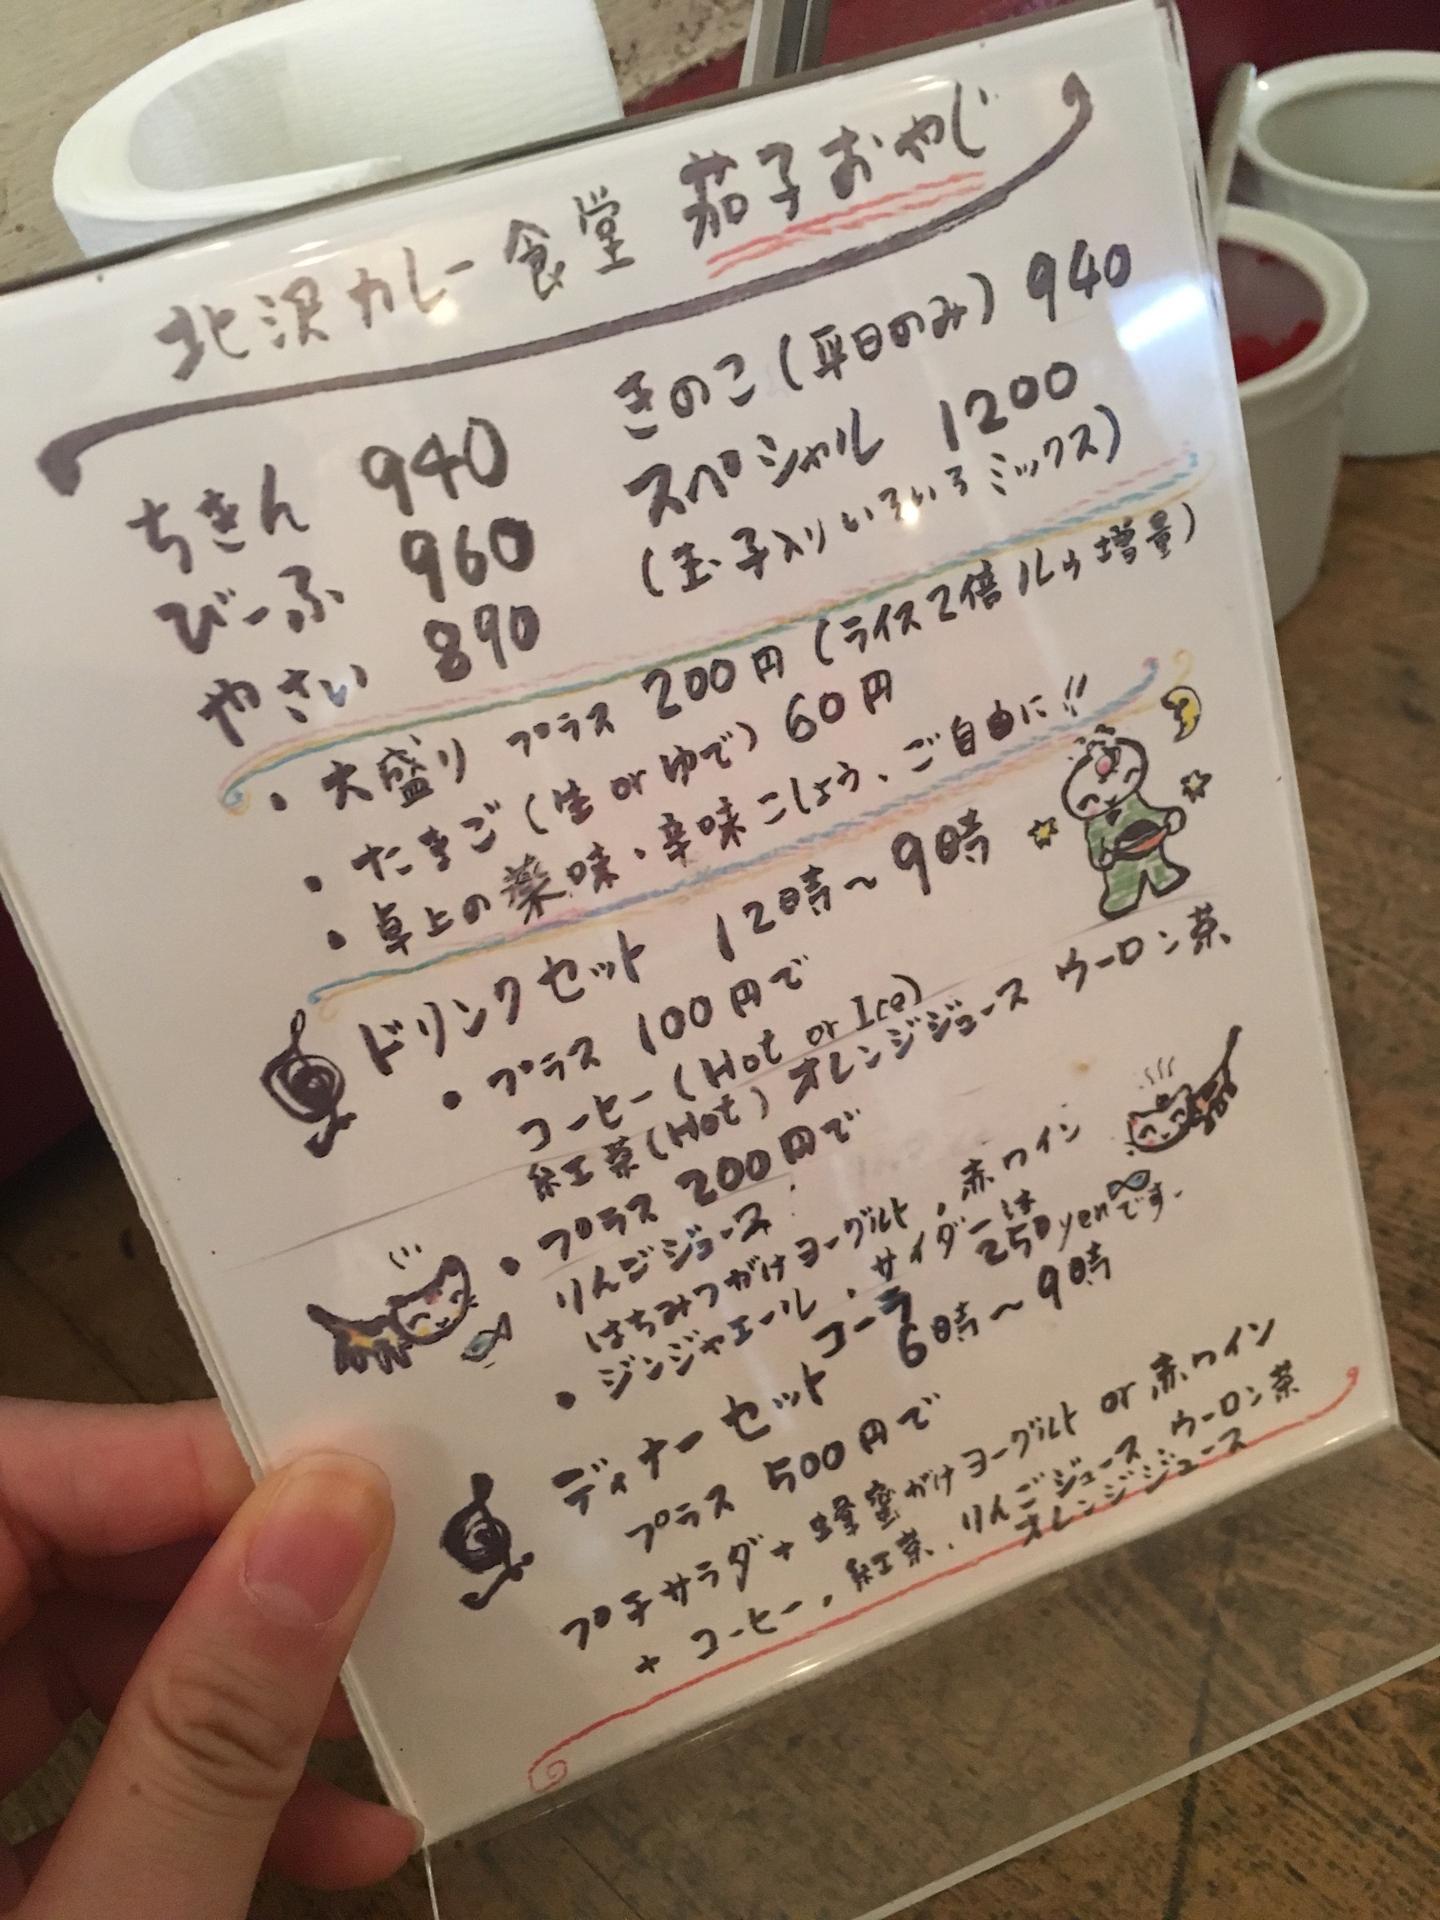 北沢カレー食堂 茄子おやじ
ちきん 940
びーふ 960
やさい 890
きのこ(平日のみ) 940
スペシャル 1200
(玉子入りいろいろミックス)
・大盛り プラス 200円 (ライス2倍ルゥ増量)
・たまご(生orゆで) 60円
・卓上の薬味・辛味こしょう、ご自由に!!
ドリンクセット 12時〜9時
・プラス 100円で
コーヒー(Hot or Ice)
紅茶(Hot) オレンジジュース ウーロン茶
・プラス 200円で
りんごジュース
はちみつがけヨーグルト, 赤ワイン
・ジンジャエール、サイダーは
コーラ 250yenです.
ディナーセット 6時〜9時
プラス 500円で
プチサラダ+蜂蜜がけヨーグルト or 赤ワイン
+ コーヒー, 紅茶, りんごジュース, ウーロン茶
オレンジジュース